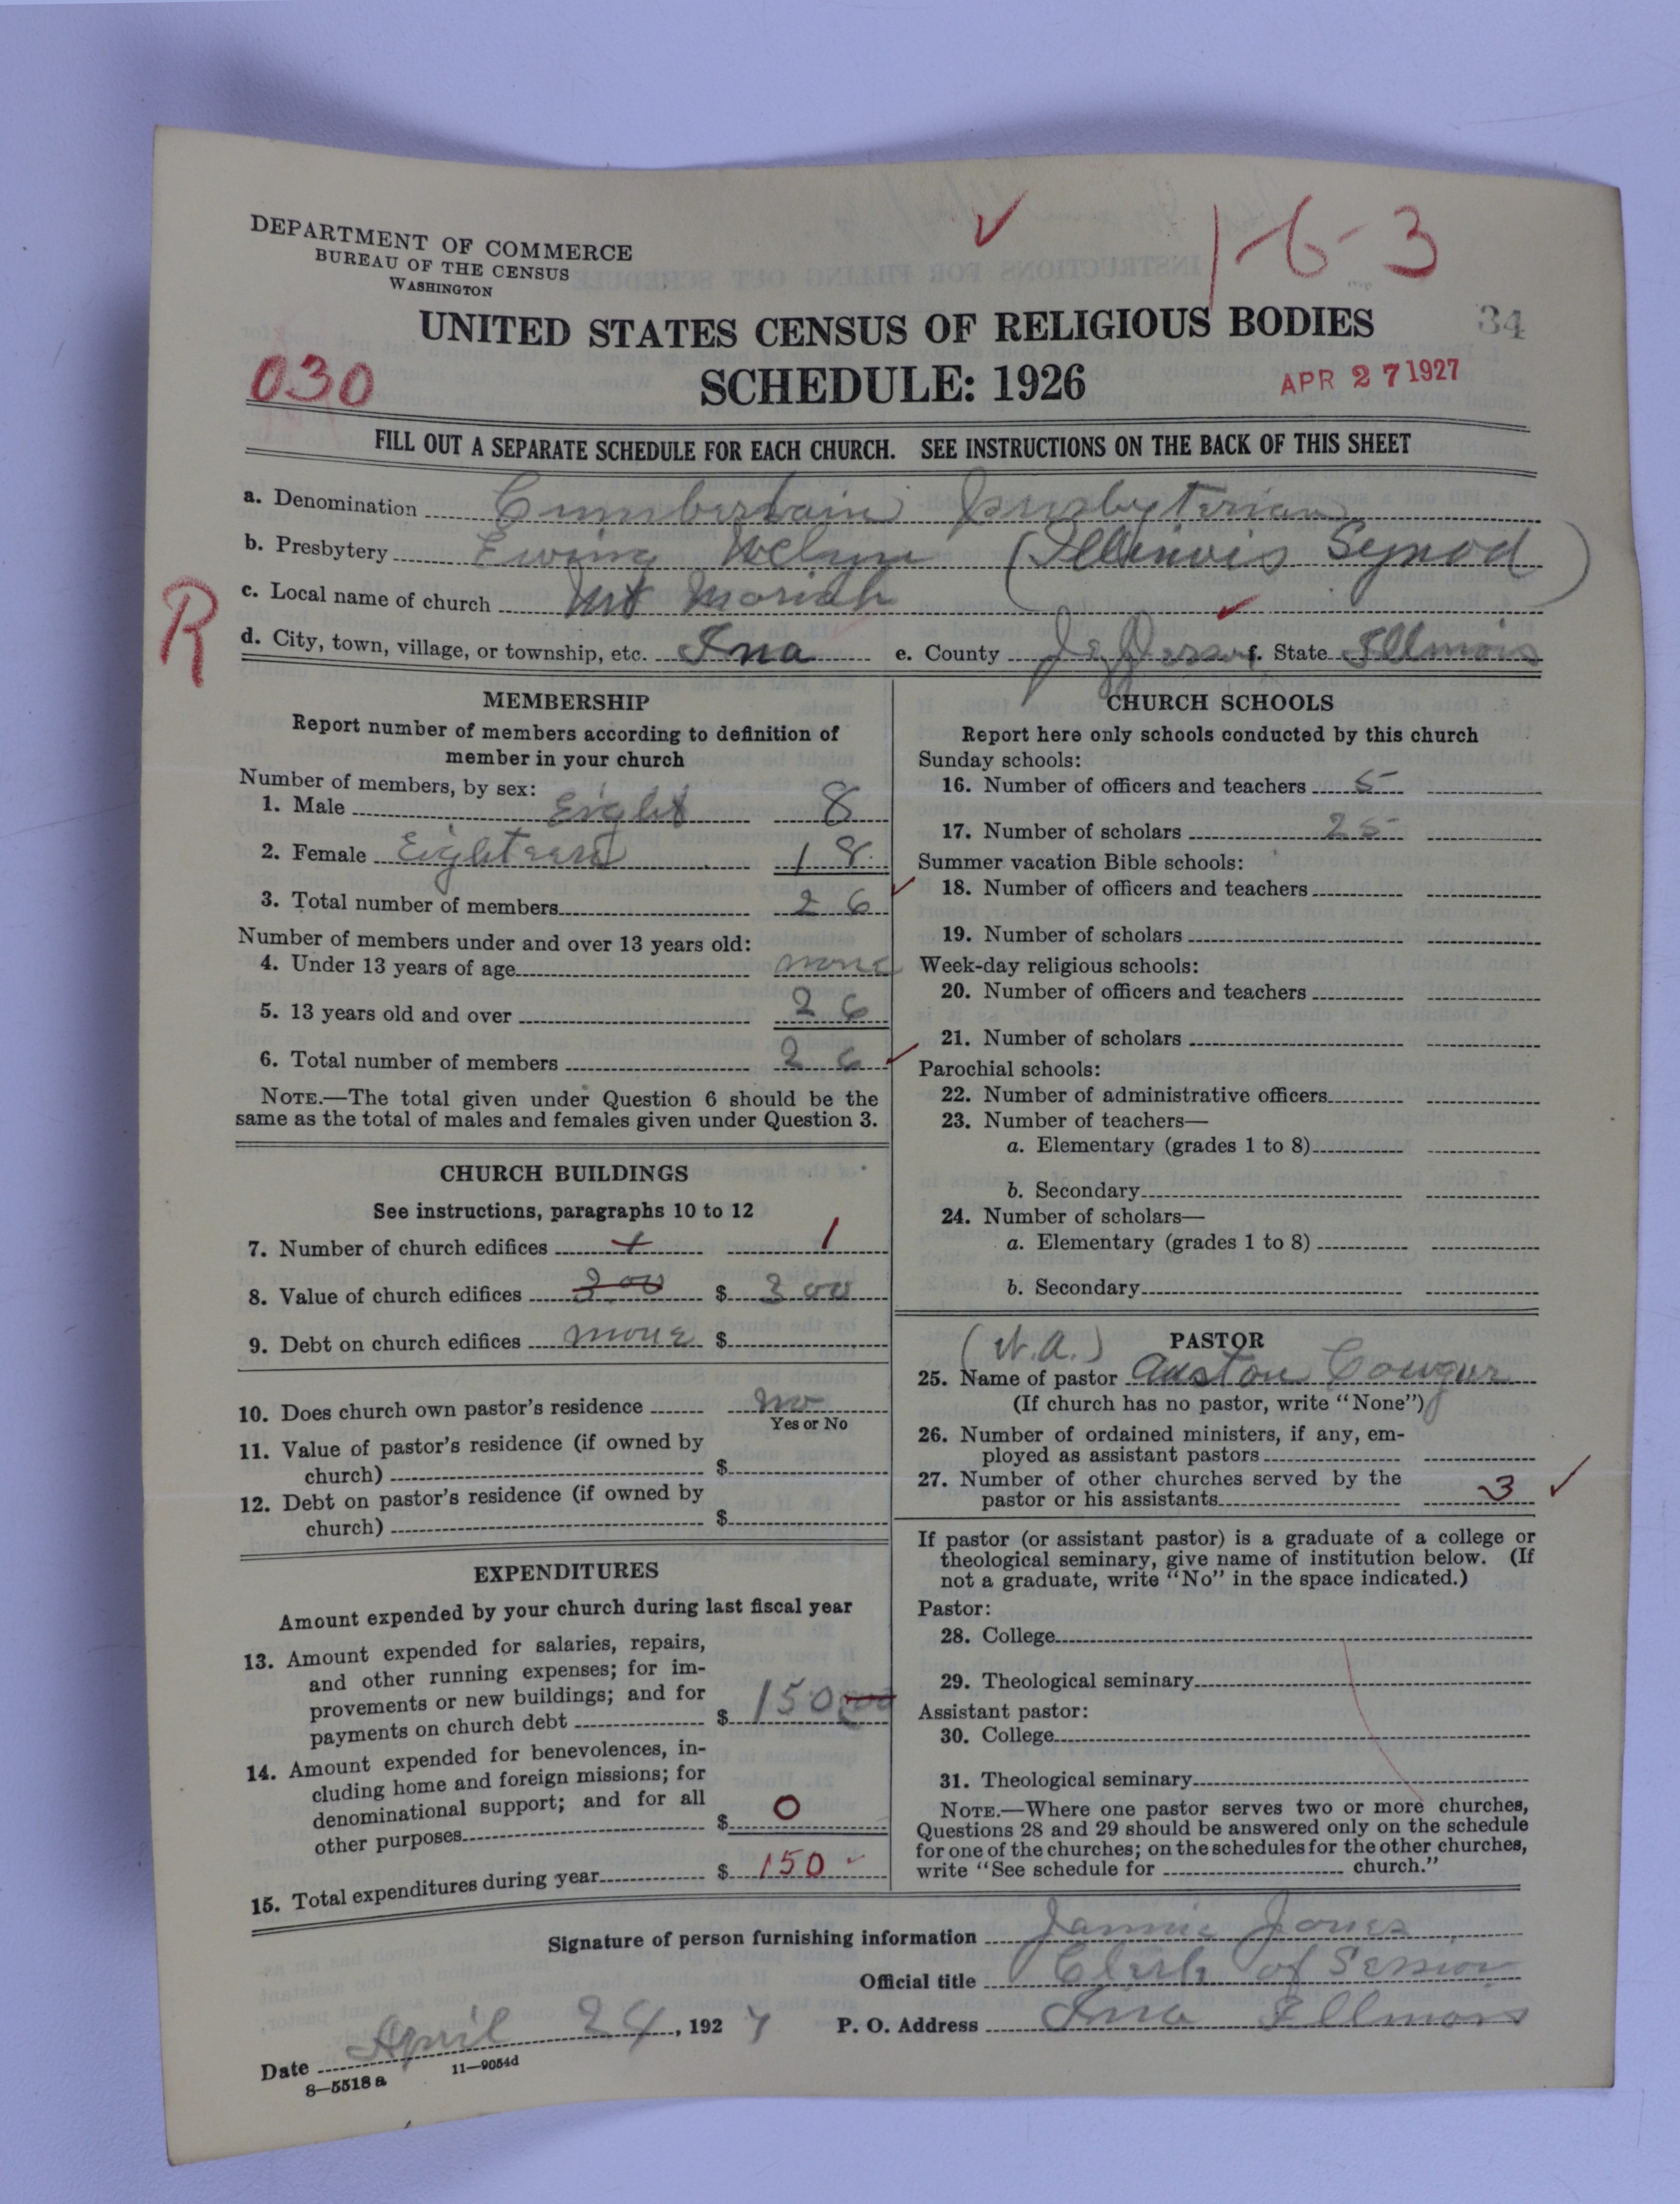 1-6-3
DEPARTMENT OF COMMERCE
BUREAU OF THE CENSUS
WASHINGTON
UNITED STATES CENSUS OF RELIGIOUS BODIES
34
030
SCHEDULE: 1926
APR 27 1927
FILL OUT A SEPARATE SCHEDULE FOR EACH CHURCH. SEE INSTRUCTIONS ON THE BACK OF THIS SHEET
a. Denomination Presbyterian
b. Presbytery Ewing (Illinois Synod)
c. Local name of church Mt Moriah
R
d. City, town, village, or township, etc. Ina e. County Jefferson f. State Illinois
MEMBERSHIP
Report number of members according to definition of
member in your church
Number of members, by sex:
1. Male Eight 8
2. Female Eighteen 18
3. Total number of members 26
Number of members under and over 13 years old:
4. Under 13 years of age none
5. 13 years old and over 26
6. Total number of members 26
NOTE.—The total given under Question 6 should be the
same as the total of males and females given under Question 3.
CHURCH BUILDINGS
See instructions, paragraphs 10 to 12
7. Number of church edifices 1 1
8. Value of church edifices 300 $ 300
9. Debt on church edifices none $
10. Does church own pastor's residence no
Yes or No
11. Value of pastor's residence (if owned by
church) $
12. Debt on pastor's residence (if owned by
church) $
EXPENDITURES
Amount expended by your church during last fiscal year
13. Amount expended for salaries, repairs,
and other running expenses; for im-
provements or new buildings; and for
payments on church debt $ 150
14. Amount expended for benevolences, in-
cluding home and foreign missions; for
denominational support; and for all
other purposes $ 0
15. Total expenditures during year $ 150
CHURCH SCHOOLS
Report here only schools conducted by this church
Sunday schools:
16. Number of officers and teachers 5
17. Number of scholars 25
Summer vacation Bible schools:
18. Number of officers and teachers
19. Number of scholars
Week-day religious schools:
20. Number of officers and teachers
21. Number of scholars
Parochial schools:
22. Number of administrative officers
23. Number of teachers—
a. Elementary (grades 1 to 8)
b. Secondary
24. Number of scholars—
a. Elementary (grades 1 to 8)
b. Secondary
(N.A.) PASTOR
25. Name of pastor Auston
(If church has no pastor, write "None")
26. Number of ordained ministers, if any, em-
ployed as assistant pastors
27. Number of other churches served by the
pastor or his assistants 3
If pastor (or assistant pastor) is a graduate of a college or
theological seminary, give name of institution below. (If
not a graduate, write "No" in the space indicated.)
Pastor:
28. College
29. Theological seminary
Assistant pastor:
30. College
31. Theological seminary
NOTE.—Where one pastor serves two or more churches,
Questions 28 and 29 should be answered only on the schedule
for one of the churches; on the schedules for the other churches,
write "See schedule for church."
Signature of person furnishing information Jannie Jones
Official title Clerk of Session
Date April 24, 1927 P. O. Address Ina Illinois
8—5518 a 11—9054d